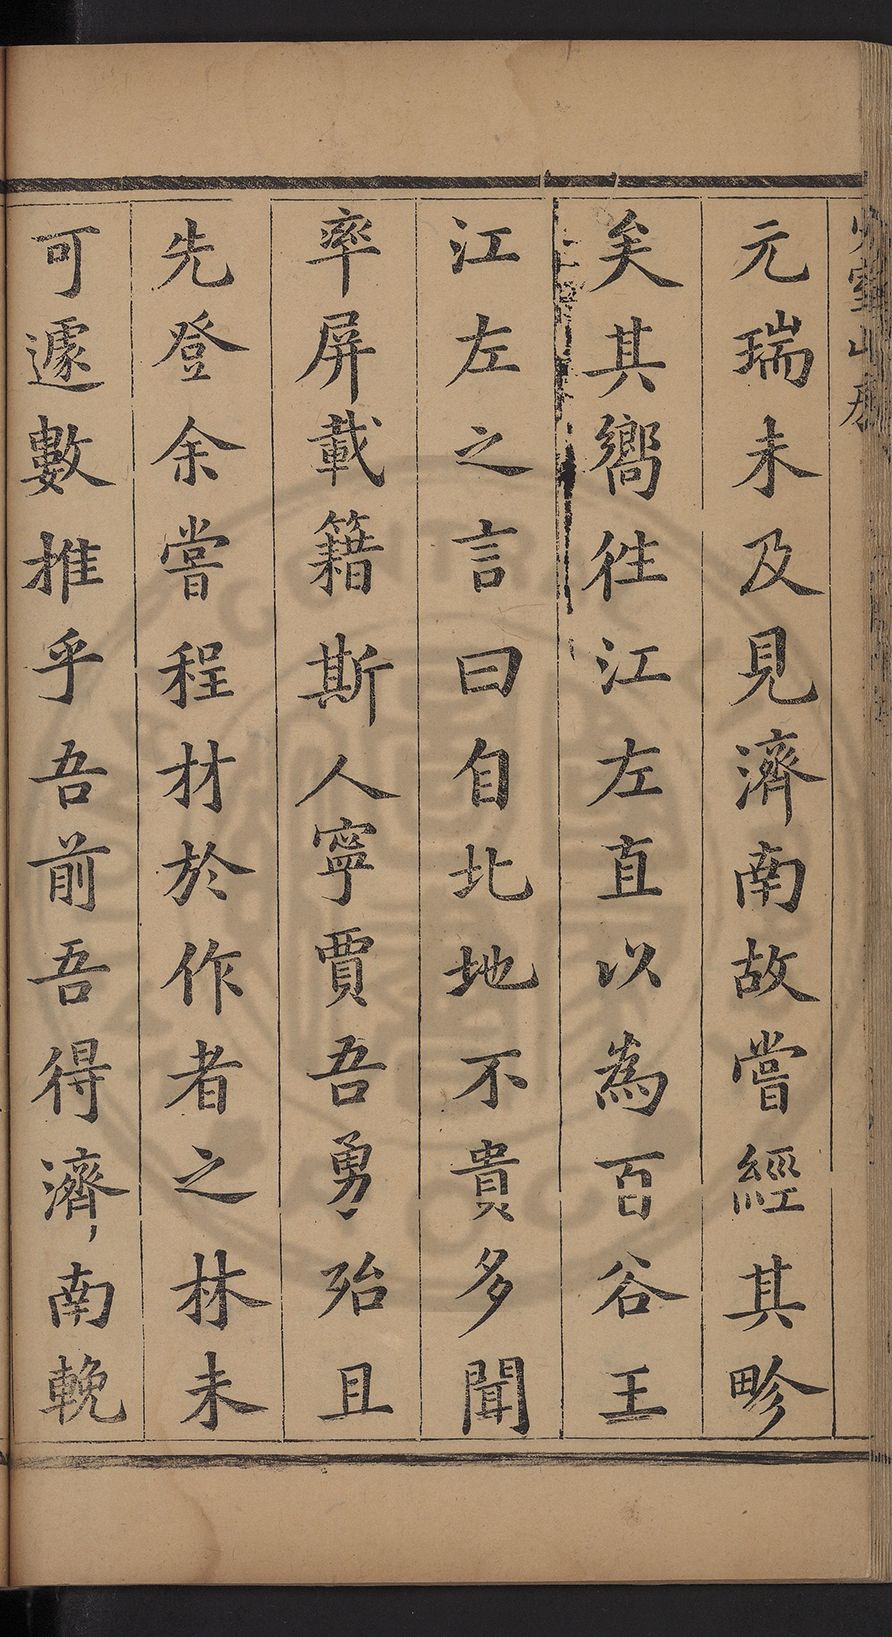 元瑞未及見濟南故嘗經其畛
矣其嚮徃江左直以為百谷王
江左之言曰自北地不貴多聞
率屏載籍斯人寧賈吾勇殆且
先登余嘗程材於作者之林未
可遽數推乎吾前吾得濟南輓